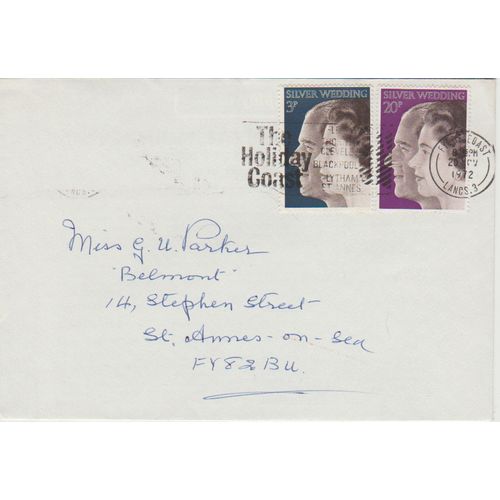 SILVER WEDDING
3P
SILVER WEDDING
20P
The
Holiday
Coast
BLACKPOOL
LYTHAM
ST ANNES
COAST
PM
1972
LANCS.3
Miss G. U. Parker
"Belmont"
14, Stephen Street
St. Annes-on-Sea
FY8 2BU.